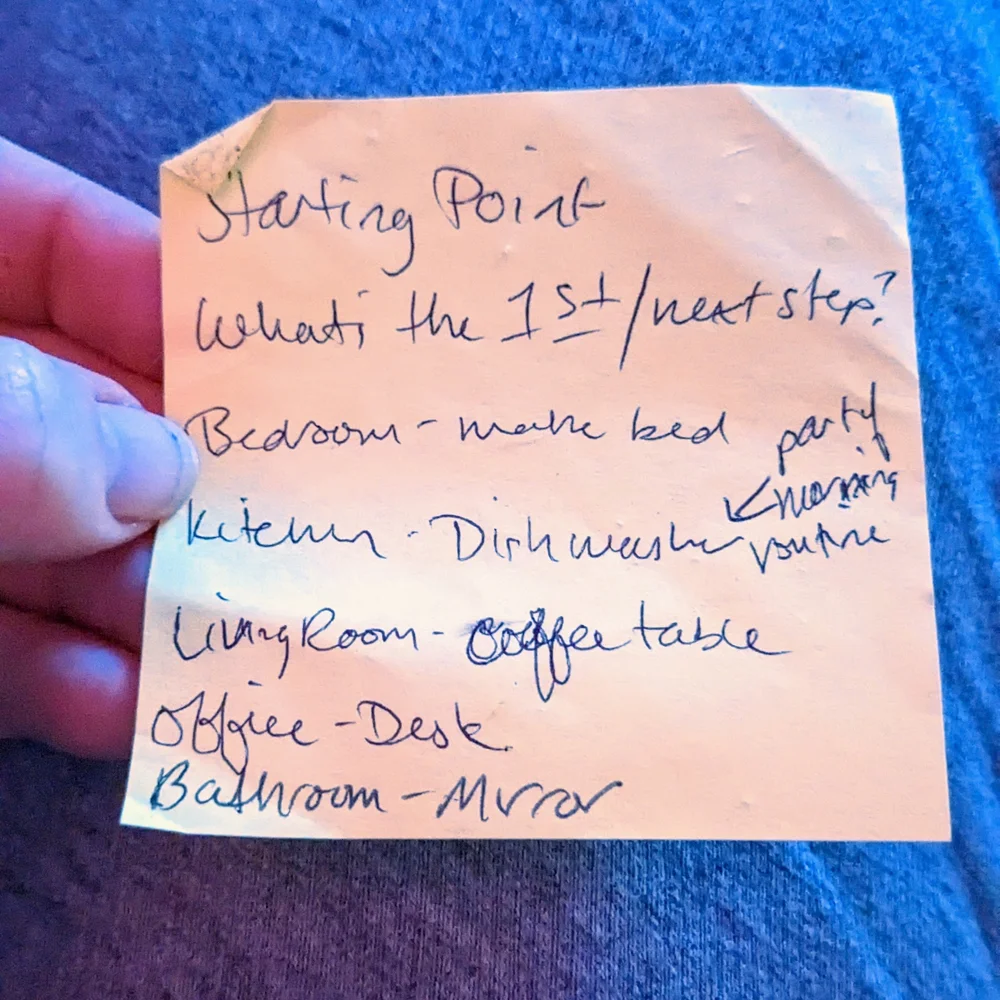 Starting Point
What's the 1st/next step?
Bedroom - make bed
party
Kitchen - Dishwasher
< morning
routine
Living Room - coffee table
Office - Desk
Bathroom - Mirror